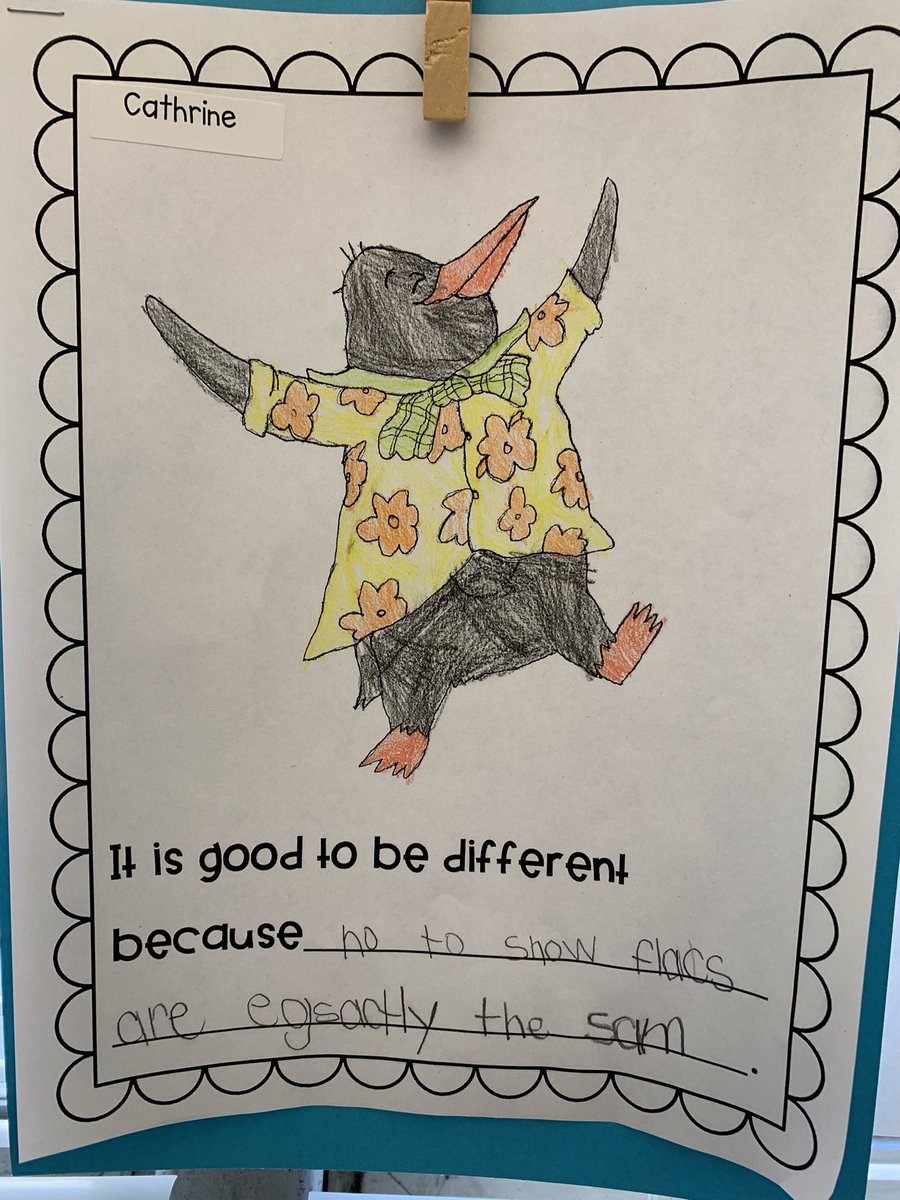 Cathrine
It is good to be different
because no to show flacs
are egsactly the sam.